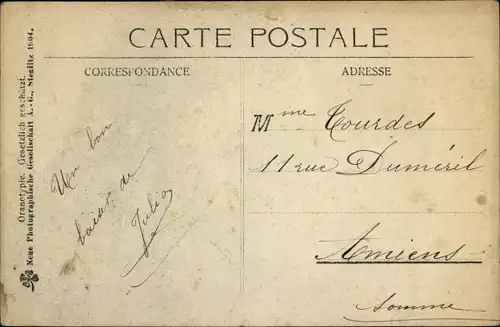 CARTE POSTALE
CORRESPONDANCE
ADRESSE
Un bon
baiser de
Julia
Mme Tourdes
11 rue Duméril
Amiens
Somme
Oranotypie. Gesetzlich geschützt.
Neue Photographische Gesellschaft A.-G., Steglitz 1904.